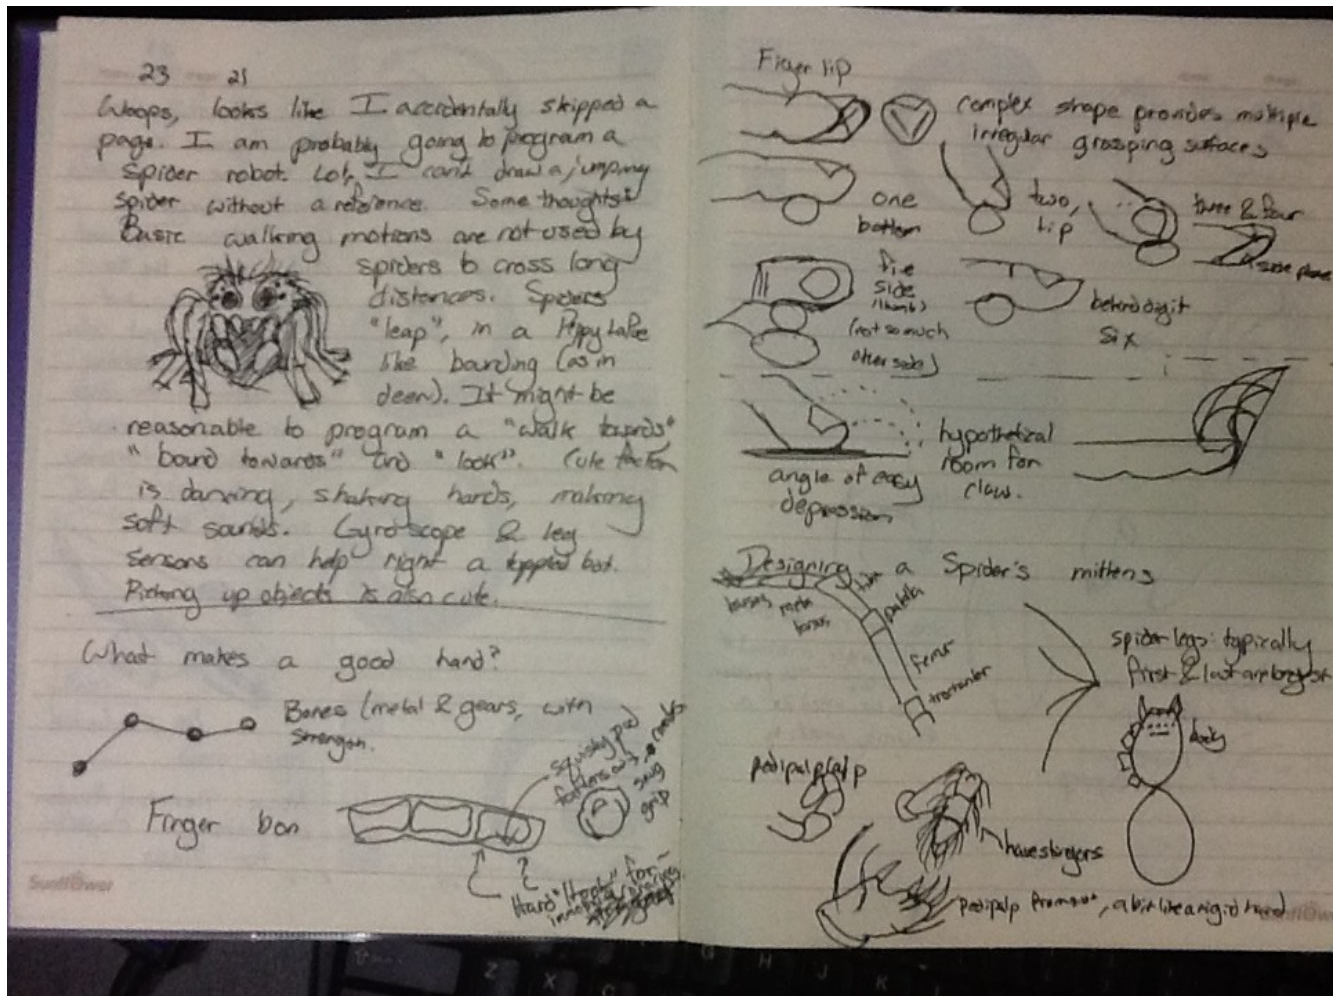 23 21
Woops, looks like I accidentally skipped a
page. I am probably going to program a
spider robot. Lol, I can't draw a jumping
spider without a reference. Some thoughts:
Basic walking motions are not used by
spiders to cross long
distances. Spiders
"leap", in a
like bounding (as in
deer). It might be
reasonable to program a "walk towards"
"bound towards" and "look". Cute factor
is dancing, shaking hands, making
soft sounds. Gyroscope & leg
sensors can help right a toppled bot.
Picking up objects is also cute.
What makes a good hand?
Bones (metal & gears, with
strength.
squishy pad
snug
grip
Finger bon
Hard "Hook" for
Sunflower
Finger tip
complex shape provides multiple
irregular grasping surfaces
one
bottom
two,
tip
three & four
same plane
five
side
(thumb)
(not so much
other side)
behind digit
six
hypothetical
room for
claw.
angle of easy
depression
Designing a Spider's mittens
tarsus
meta
tarsus
tibia
patella
femur
trochanter
spider legs: typically
first & last are longest
body
pedipalp
have stingers
Pedipalp , a bit like a rigid hand
Z X C G H J K